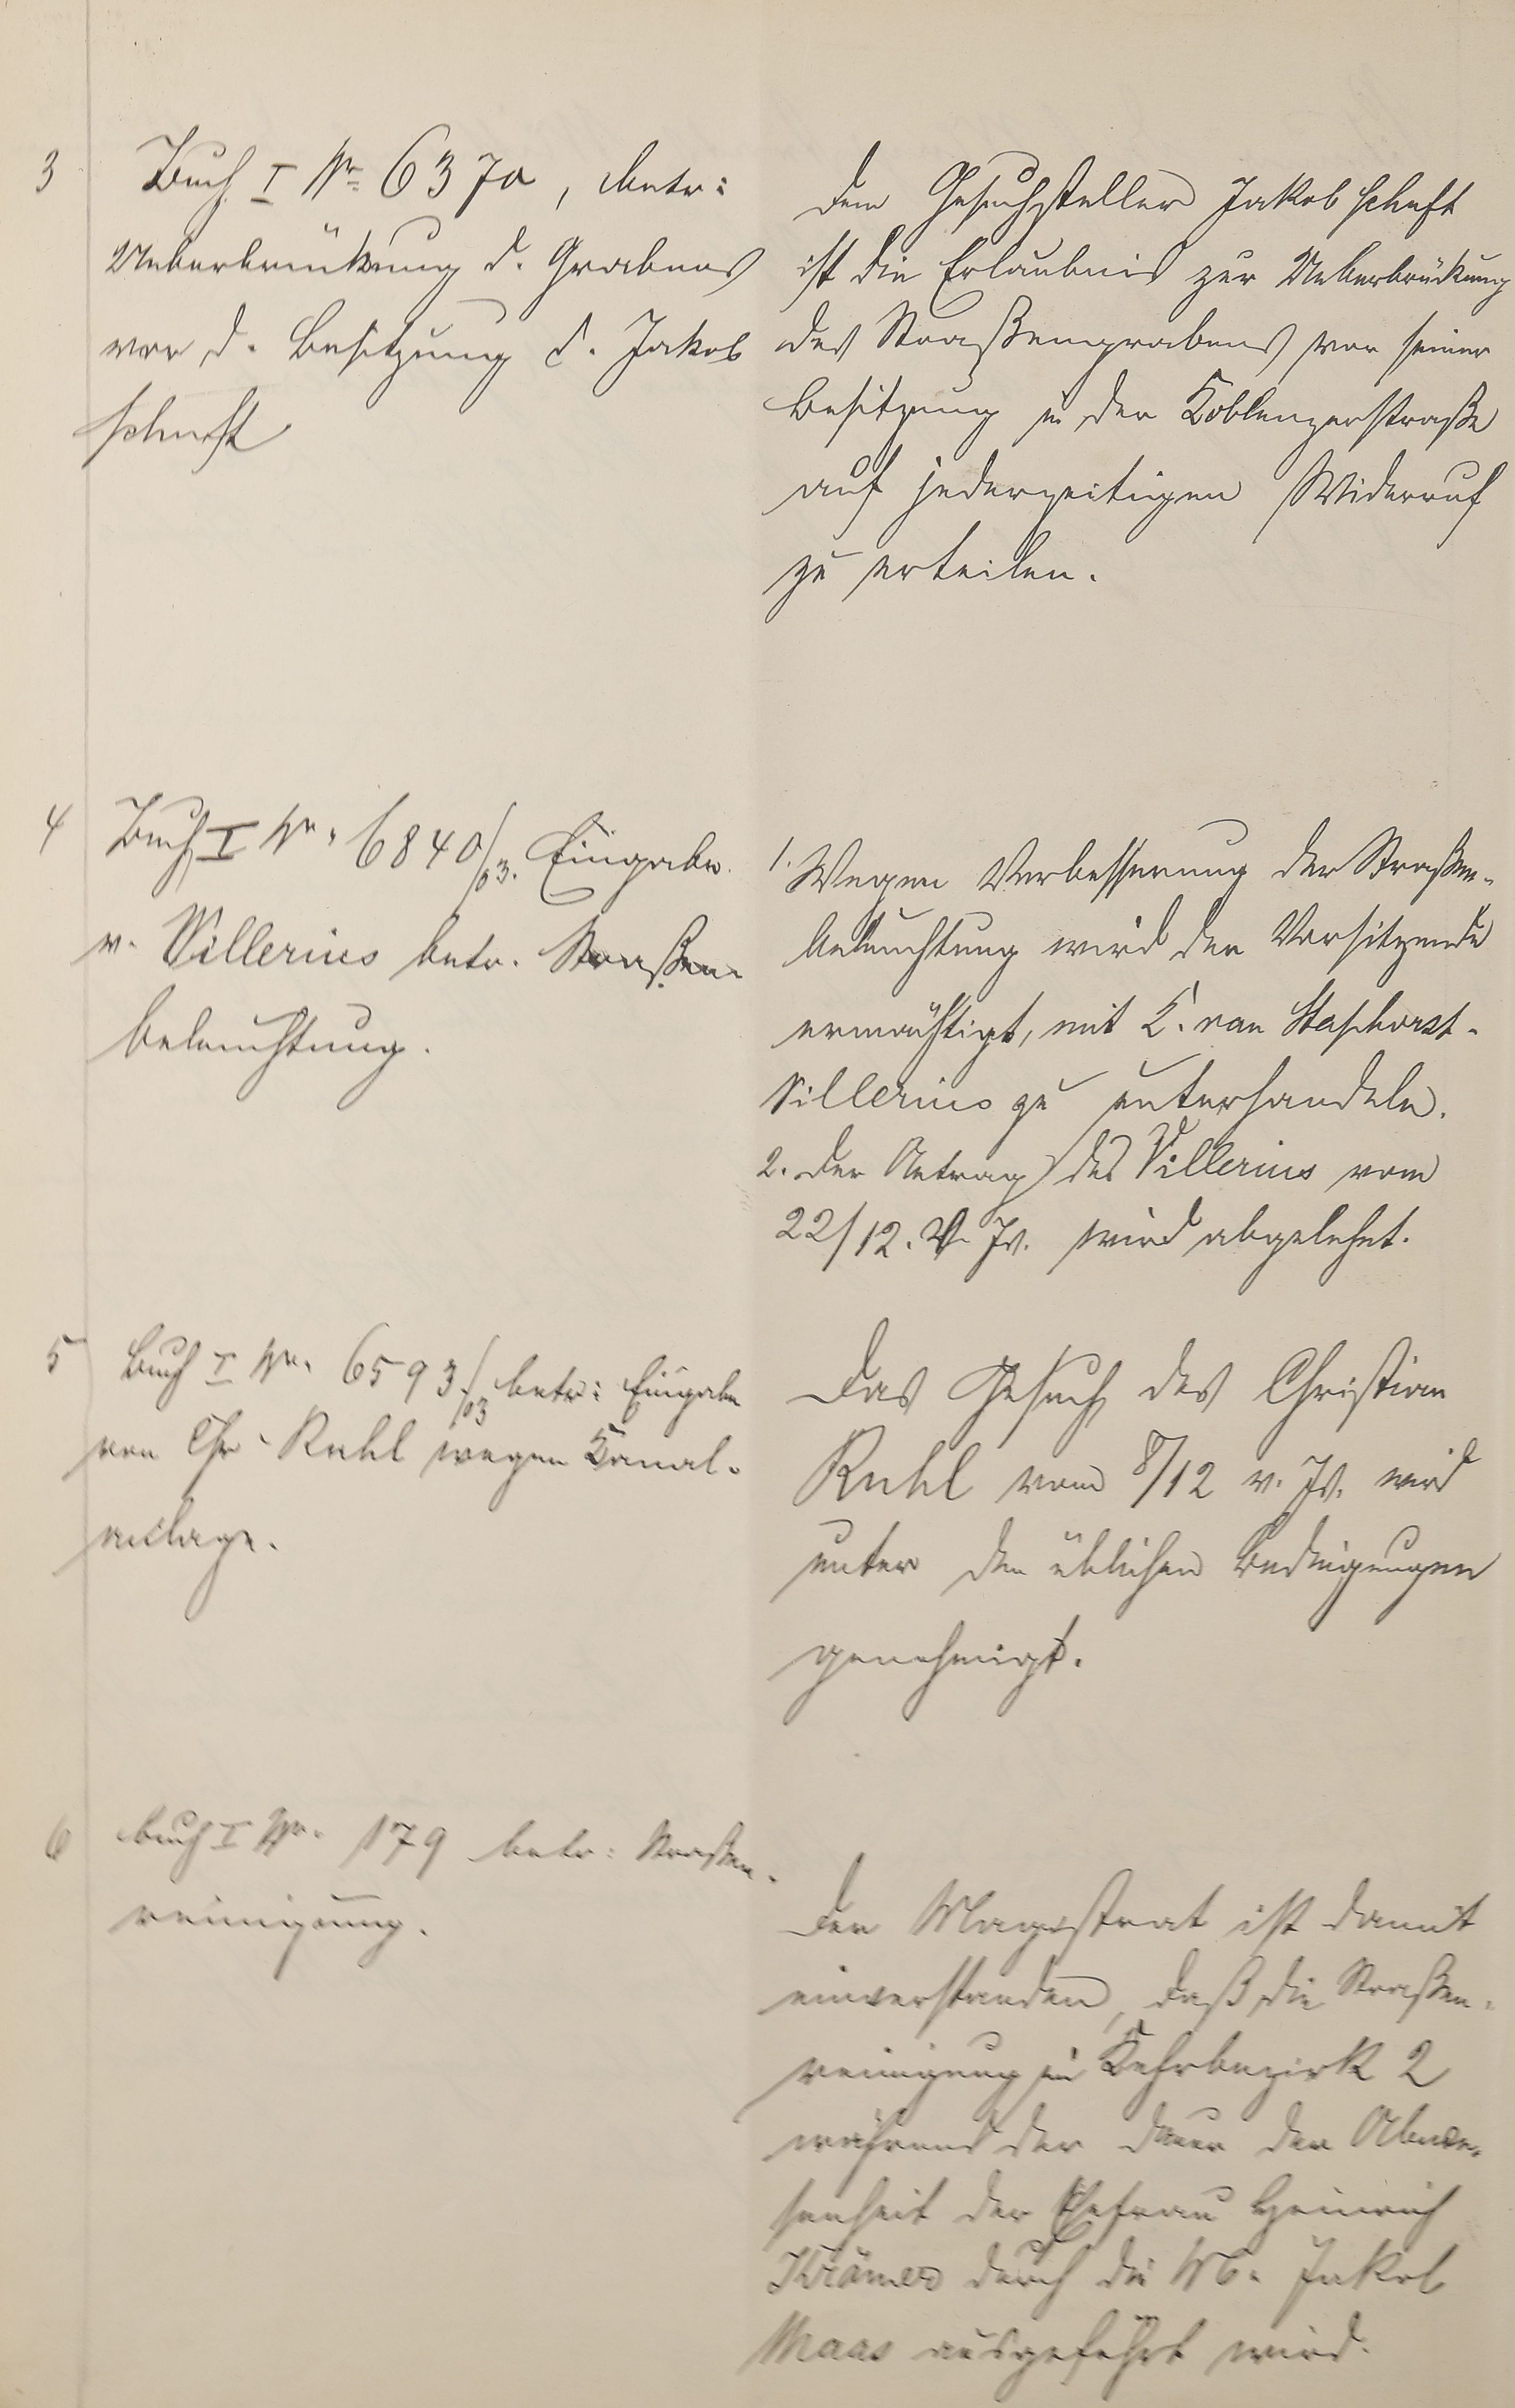 3
Buch I Nr. 6370, betr:
Ueberbrückung d. Grabens
vor d. Besitzung d. Jakob
Schuft
Dem Gesuchsteller Jakob Schuft
ist die Erlaubnis zur Ueberbrückung
des Straßengrabens vor seiner
Besitzung in der Koblenzerstraße
auf jederzeitigen Widerruf
zu erteilen.
4
Buch I Nr. 6840/03. Eingabe
v. Villerius betr. Straßen-
beleuchtung.
1. Wegen Verbesserung der Straßen-
beleuchtung wird der Vorsitzende
ermächtigt, mit K. van Staphorst-
Villerius zu unterhandeln.
2. Der Antrag des Villerius vom
22/12. v. Js. wird abgelehnt.
5
Buch I Nr. 6593/03 betr: Eingabe
von Chr. Ruhl wegen Kanal-
anlage.
Das Gesuch des Christian
Ruhl vom 8/12 v. Js. wird
unter den üblichen Bedingungen
genehmigt.
6
Buch I Nr. 179 betr: Straßen-
reinigung.
Der Magistrat ist damit
einverstanden, daß die Straßen-
reinigung in Kehrbezirk 2
während der Dauer der Abwe-
senheit der Ehefrau Heinrich
Krämer durch die W. Jakob
Maas ausgeführt wird.